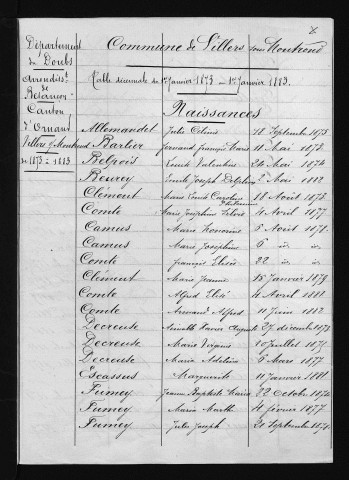 Département
du Doubs
Arrondisst
de
Besançon
Canton
d'Ornans
Villers s/ Montrond
de 1873 = 1883
Commune de Villers sous Montrond
Table décennale du 1er Janvier 1873 = 1er Janvier 1883.
Naissances
Allemandet Julie Célina 18 Septembre 1873
Barbier Fernand François Marie 11 Mai 1873
Belpois Louis Valentin 24 Mai 1874
Beurey Emile Joseph Delphin 2 Mai 1882
Clément Marie Louise Caroline 18 Août 1873
Comte Marie Joséphine 4 Avril 1877
Camus Marie Honorine 6 Août 1878
Camus Marie Joséphine 6 id. id.
Comte François Elisée 22 id. id.
Clément Marie Jeanne 15 Janvier 1879
Comte Alfred Elisé 4 Avril 1882
Comte Armand Alfred 11 Juin 1882
Decreuse Xavier Auguste 27 décembre 1873
Decreuse Marie Virginie 10 Juillet 1875
Decreuse Marie Adeline 6 Mars 1877
Escassus Marguerite 11 Janvier 1881
Fumey Jeanne Baptiste Marie 22 Octobre 1874
Fumey Marie Marthe 4 février 1877
Fumey Jules Joseph 24 Septembre 1878